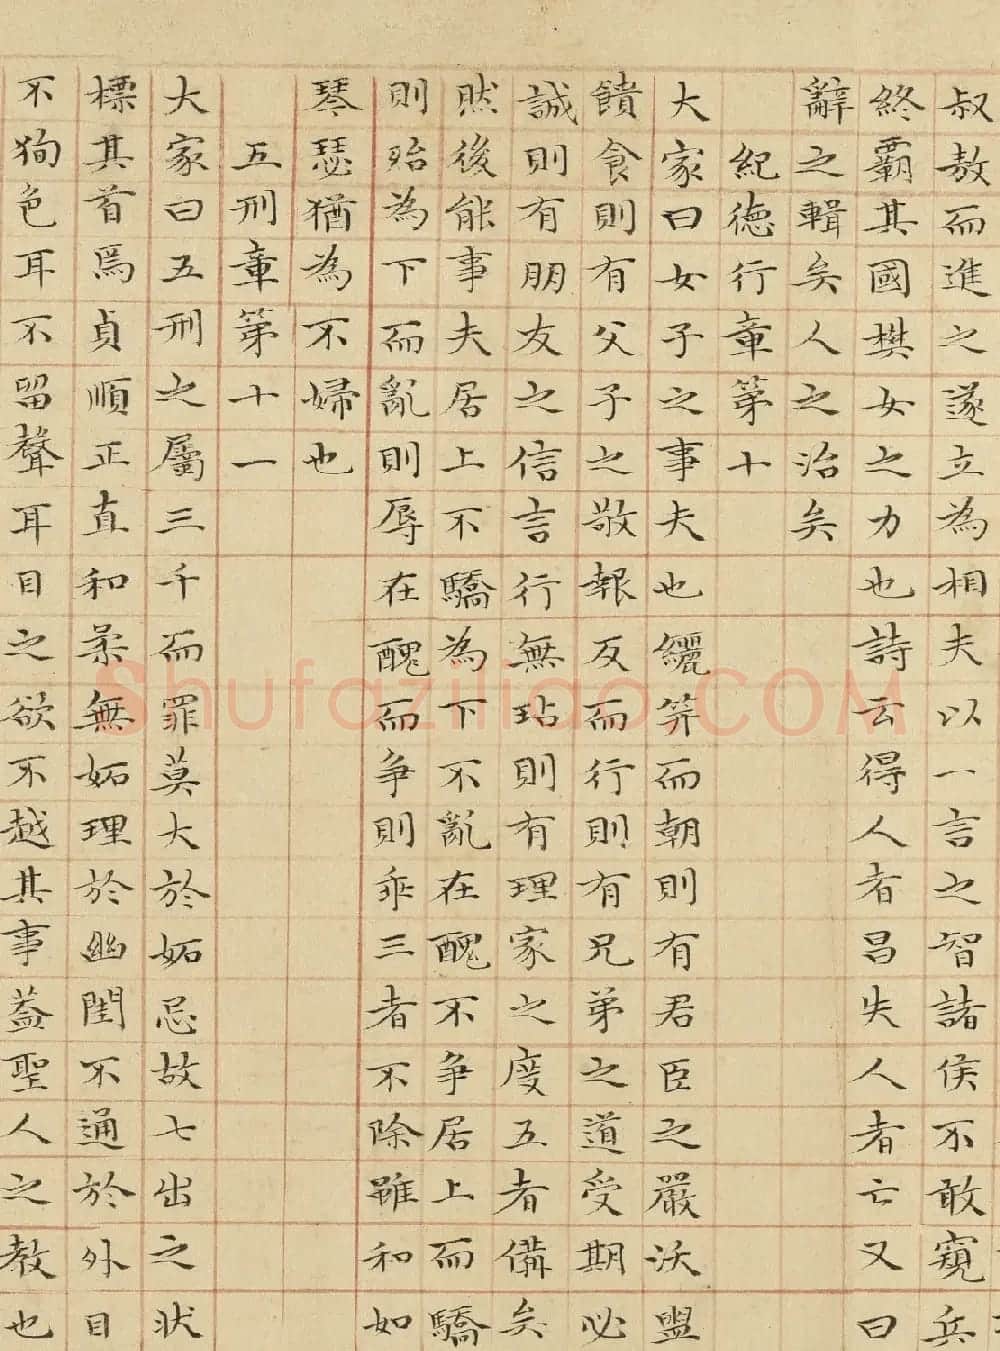 叔敖而進之遂立為相夫以一言之智諸侯不敢窺兵
終霸其國樊女之力也詩云得人者昌失人者亡又曰
辭之輯矣人之治矣
紀德行章第十
大家曰女子之事夫也纚笄而朝則有君臣之嚴沃盥
饋食則有父子之敬報反而行則有兄弟之道受期必
誠則有朋友之信言行無玷則有理家之度五者備矣
然後能事夫居上不驕為下不亂在醜不爭居上而驕
則殆為下而亂則辱在醜而爭則乖三者不除雖和如
琴瑟猶為不婦也
五刑章第十一
大家曰五刑之屬三千而罪莫大於妬忌故七出之狀
標其首焉貞順正直和柔無妬理於幽閨不通於外目
不狥色耳不留聲耳目之欲不越其事蓋聖人之教也
Shufaziliao.COM